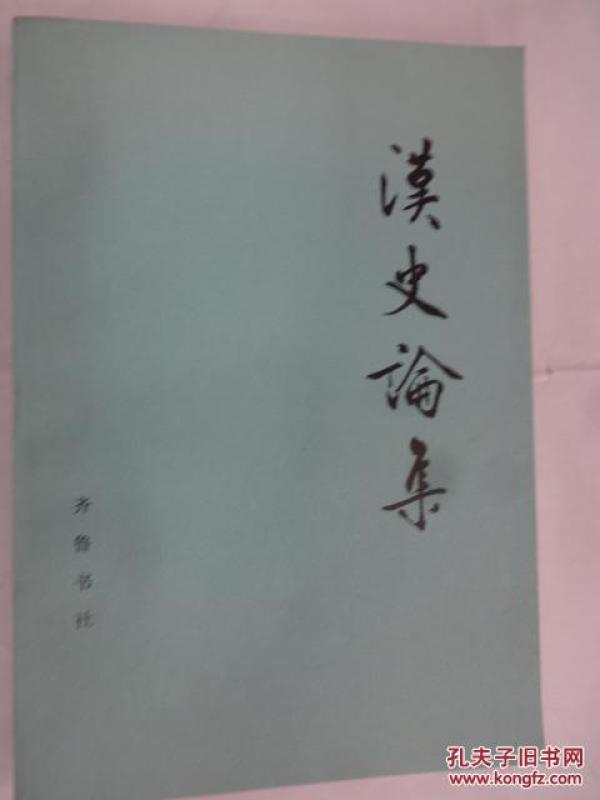 漢史論集
齐鲁书社
孔夫子旧书网
www.kongfz.com